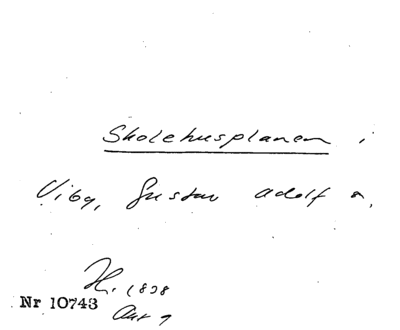 Skolehusplanen i
Viby, Gustav Adolf s.
H. 1898
Nr 10743